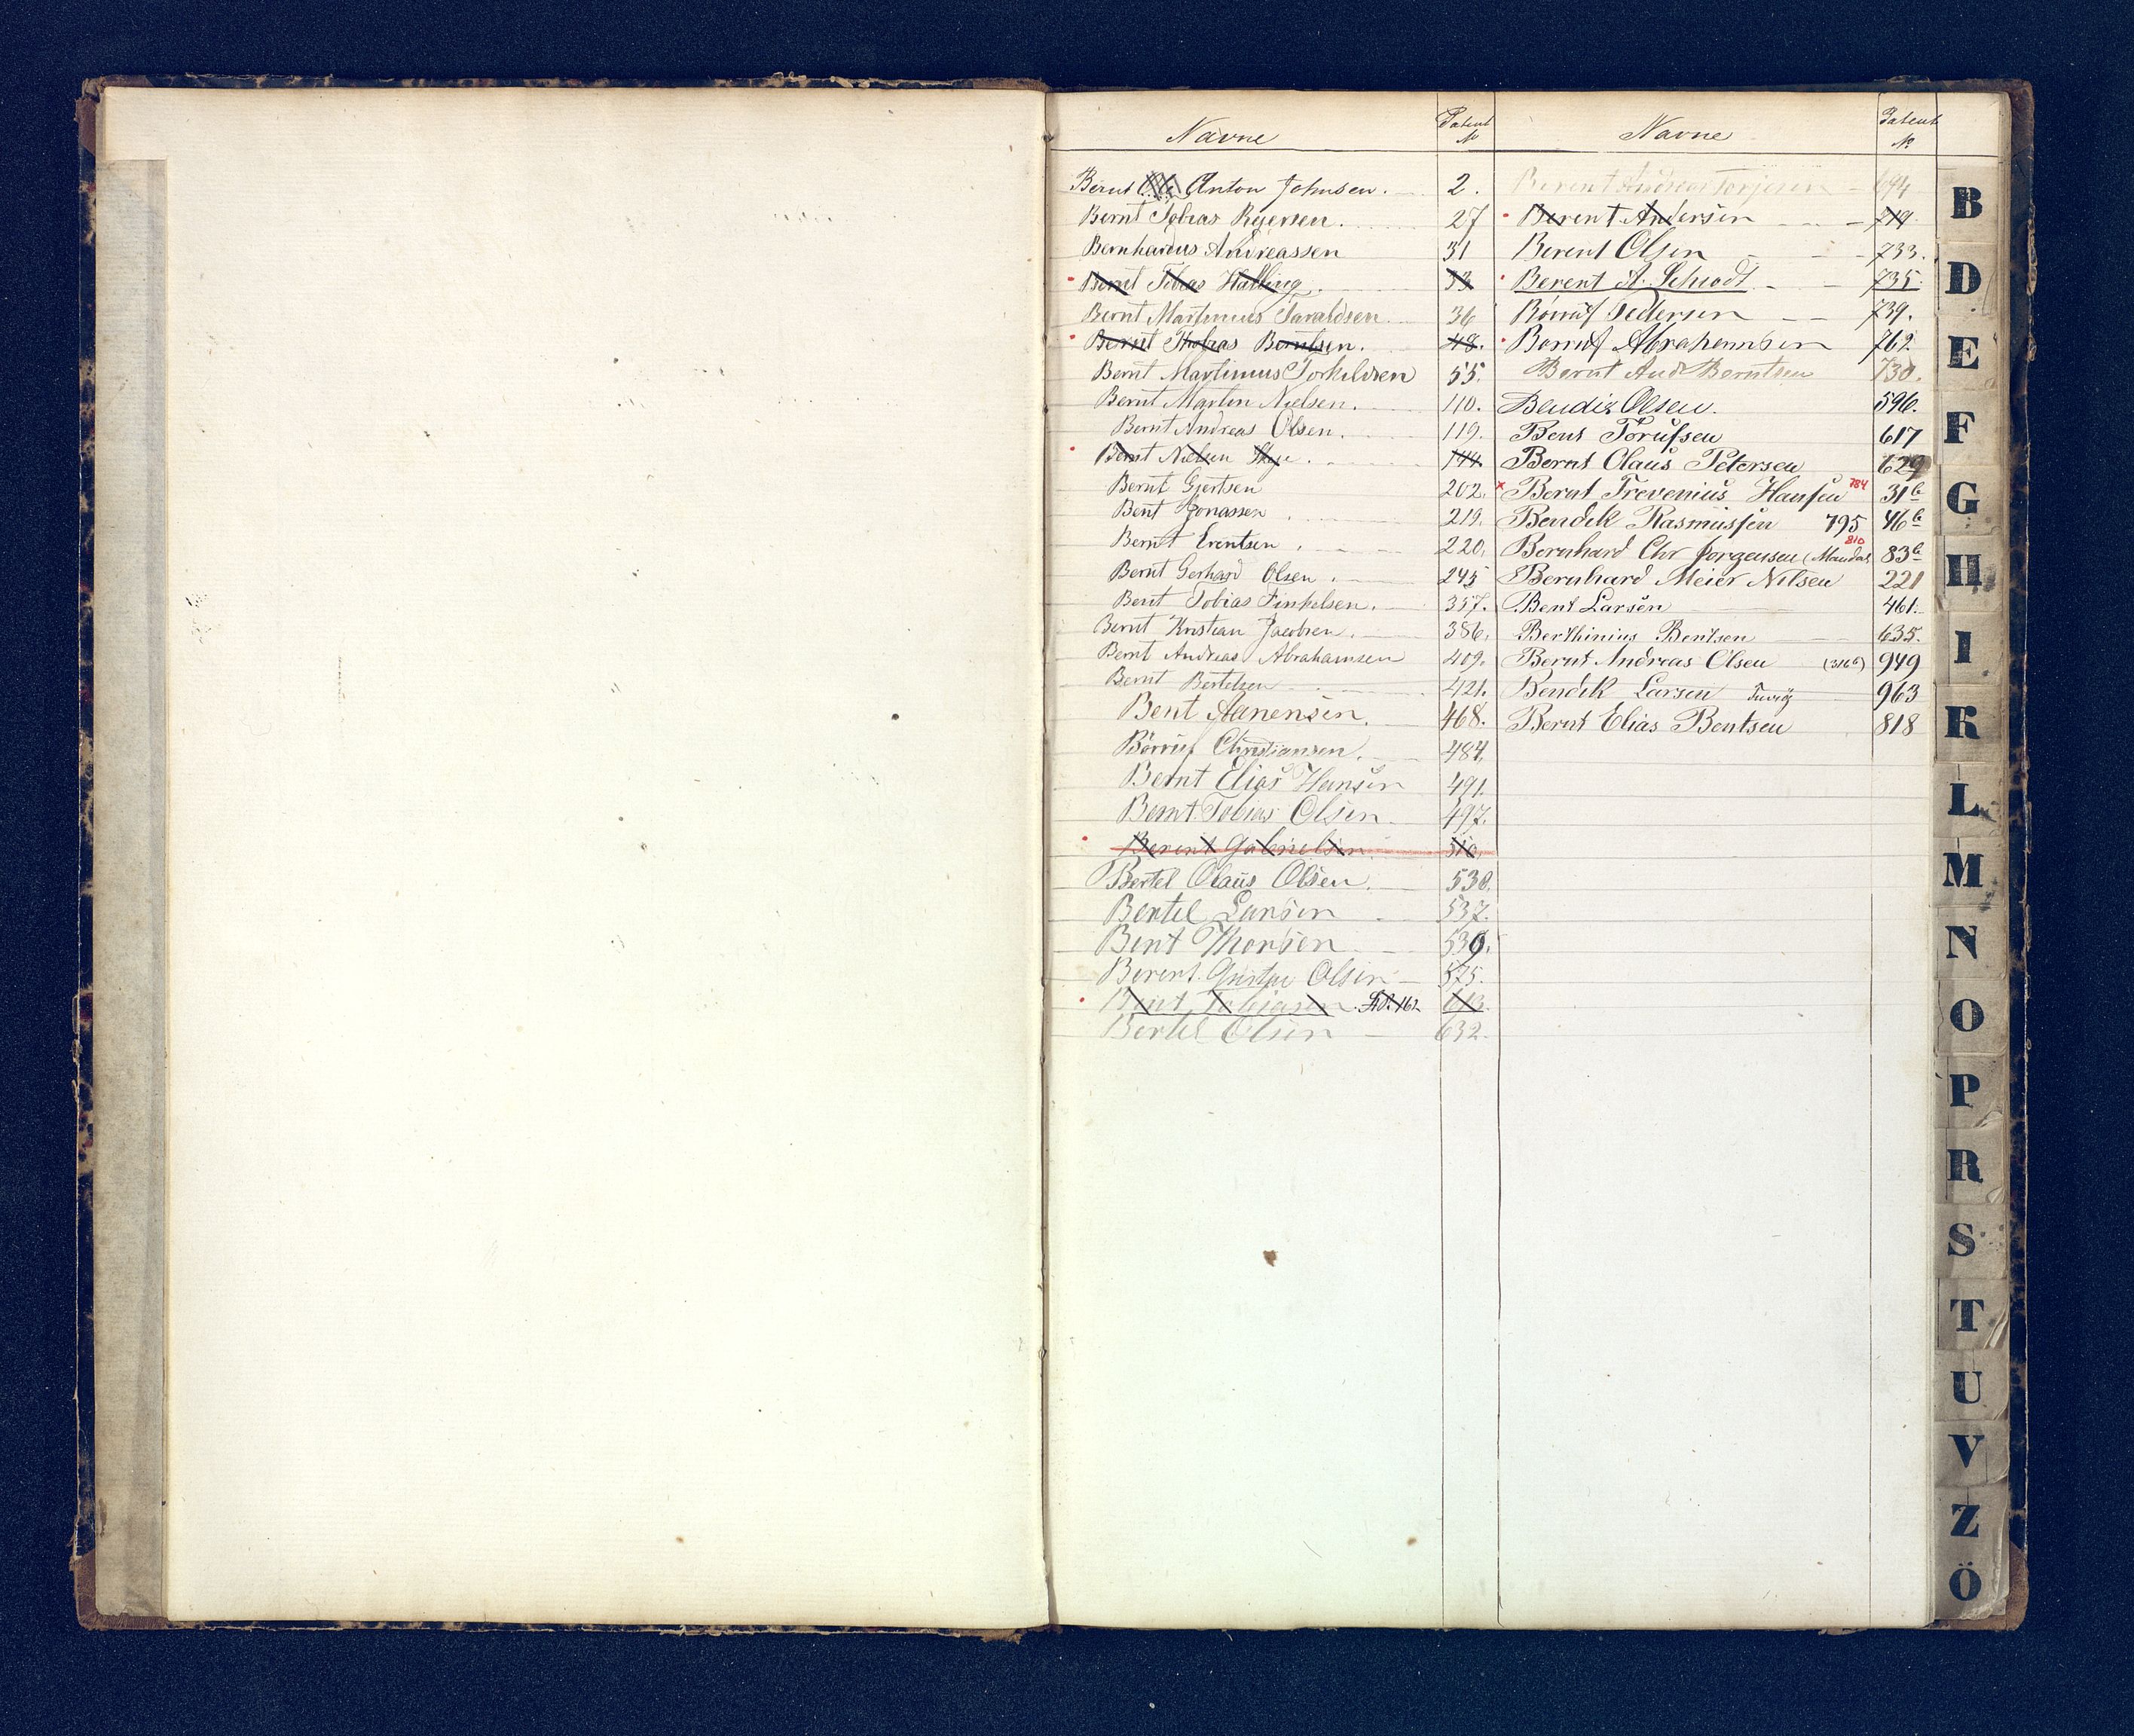 Navne Patent №
Bernt Anton Johnsen. 2.
Bernt Tobias Reiersen. 27
Bernhardus Andreassen 31
Bernt Tobias Halling. 33
Bernt Martinius Taraldsen 36
Bernt Thobias Berntsen. 48.
Bernt Martinius Torkildsen 55.
Bernt Martin Nielsen. 110.
Bernt Andreas Olsen. 119.
Bernt Nielsen 144.
Bernt Gjertsen 202.
Bent Jonassen 219.
Bernt Erentsen 220.
Bernt Gerhard Olsen. 245
Bent Tobias Finkelsen. 357.
Bernt Kristian Jacobsen. 386.
Bernt Andreas Abrahamsen 409.
Bernt Bertelsen 421.
Bent Aanensen. 468.
Børrius Christiansen. 484.
Bernt Elias Hansen 491.
Bernt Tobias Olsen. 497.
Berent Gabrielsen 516.
Bertel Olaus Olsen. 538.
Bertel Larsen 537.
Bent Thorsen 539.
Berent Olsen 575.
Bent Tobiasen 613.
Bertel Olsen 632.
Navne Patent №
Berent Andreas Torjesen 694
Berent Andersen 719
Berent Olsen 733.
Berent A. Schiodt 735.
Pedersen 739.
Abrahamsen 762.
Bernt Andr Berntsen 730.
Bendix Olsen. 596.
Bent Torufsen 617
Bernt Olaus Petersen 629
Bernt Trevenius Hansen 784 31b
Bendik Rasmussen 795 46b
810
Bernhard Chr Jørgensen (Mandal) 83b
Bernhard Meier Nilsen 221
Bent Larsen 461.
Berthinius Bentsen 635.
Bernt Andreas Olsen (316b) 949
Bendik Larsen 963
Bernt Elias Bentsen 818
B
D
E
F
G
H
I
K
L
M
N
O
P
R
S
T
U
V
Z
Ö